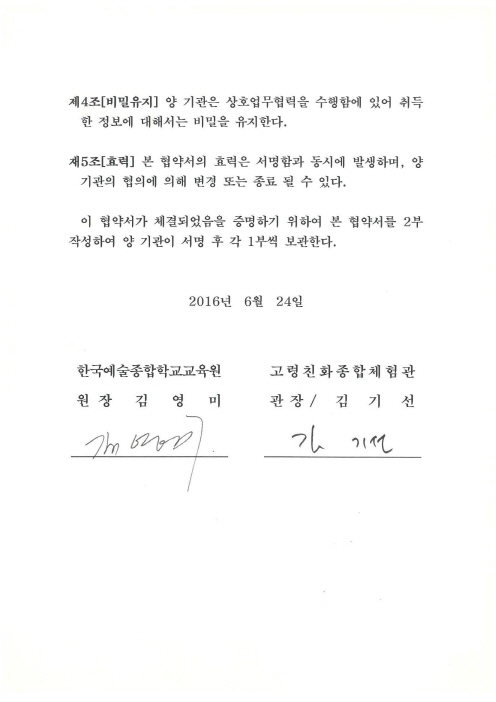 제4조[비밀유지] 양 기관은 상호업무협력을 수행함에 있어 취득
한 정보에 대해서는 비밀을 유지한다.
제5조[효력] 본 협약서의 효력은 서명함과 동시에 발생하며, 양
기관의 협의에 의해 변경 또는 종료 될 수 있다.
이 협약서가 체결되었음을 증명하기 위하여 본 협약서를 2부
작성하여 양 기관이 서명 후 각 1부씩 보관한다.
2016년 6월 24일
한국예술종합학교교육원
원 장 김 영 미
고령친화종합체험관
관 장 / 김 기 선
기선